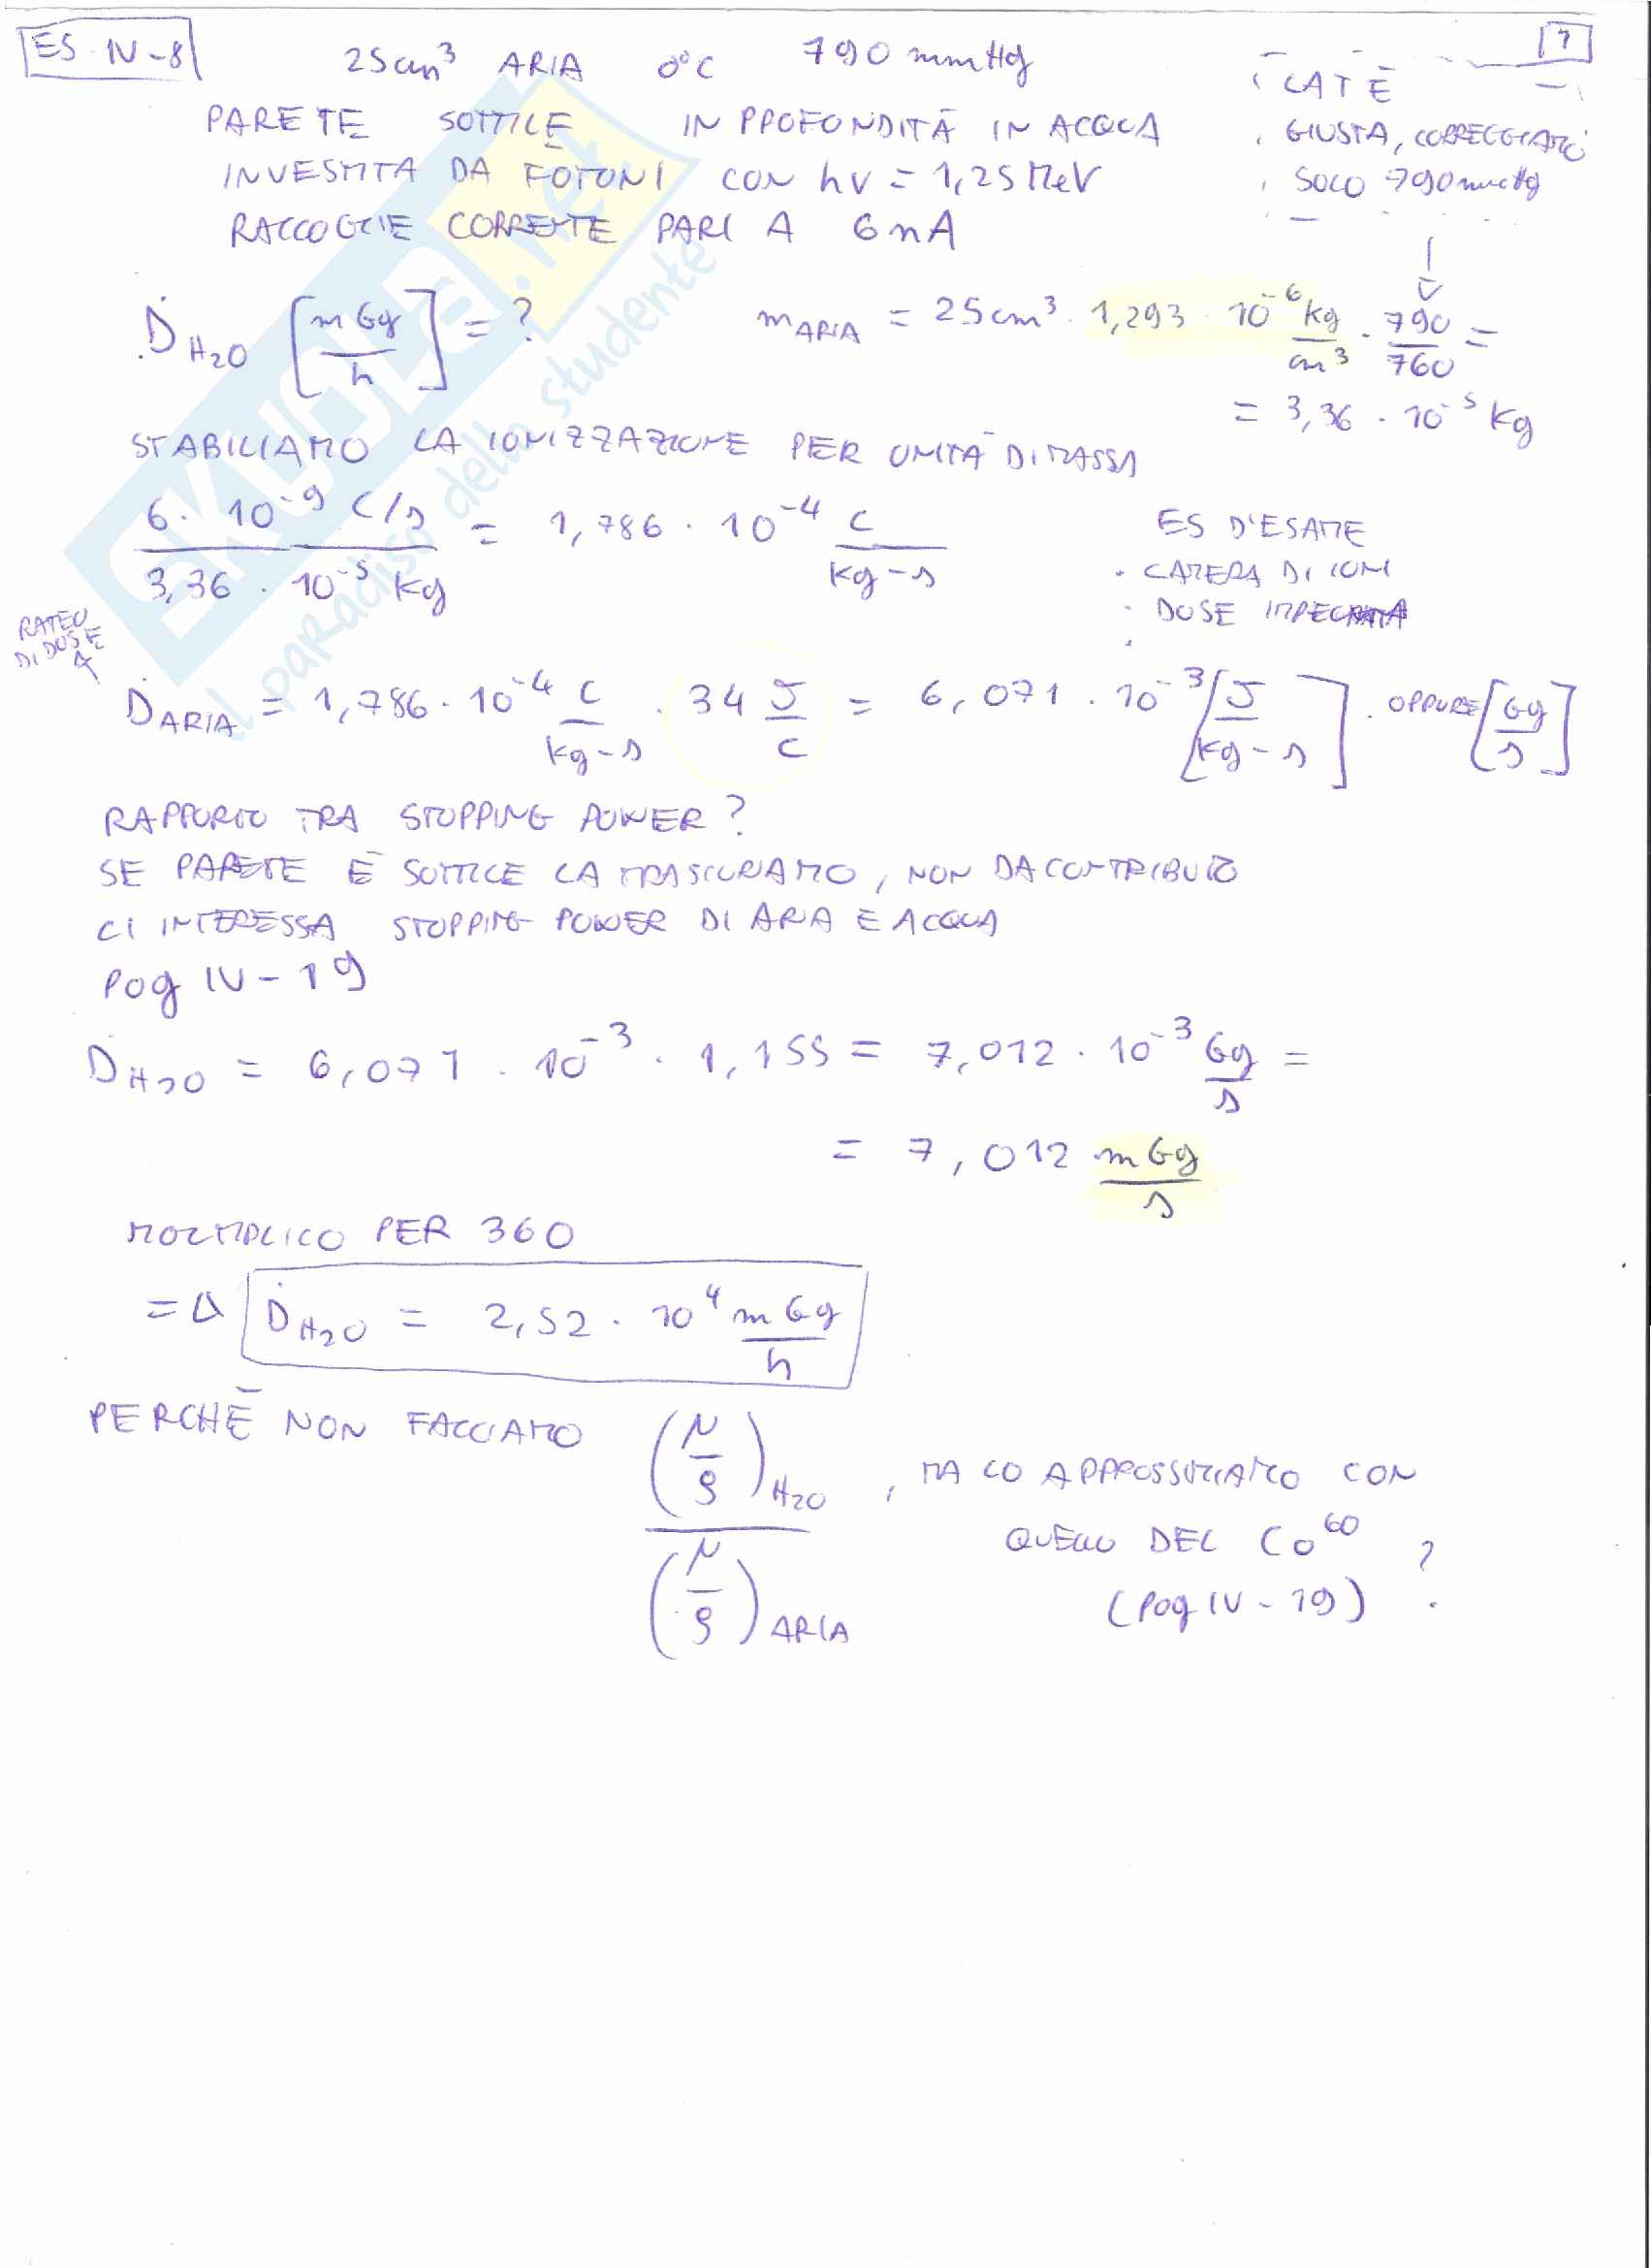 ES. IV-8
25cm³ ARIA 0°C 790 mmHg
7
PARETE SOTTILE IN PROFONDITÀ IN ACQUA
INVESTITA DA FOTONI CON hν = 1,25 MeV
RACCOGLIE CORRENTE PARI A 6 nA
LA T È
GIUSTA, CORREGGIAMO
SOLO 790 mmHg
Ḋ H₂O [mGy/h] = ?
m ARIA = 25 cm³ · 1,293 · 10⁻⁶ kg/cm³ · 790/760 =
= 3,36 · 10⁻⁵ kg
STABILIAMO LA IONIZZAZIONE PER UNITÀ DI MASSA
6 · 10⁻⁹ C/s / 3,36 · 10⁻⁵ kg = 1,786 · 10⁻⁴ C/kg-s
ES D'ESAME
· CAMERA DI IONI
· DOSE
RATEO
DI DOSE
Ḋ ARIA = 1,786 · 10⁻⁴ C/kg-s · 34 J/C = 6,071 · 10⁻³ [J/kg-s] · OPPURE [Gy/s]
RAPPORTO TRA STOPPING POWER?
SE PARETE È SOTTILE LA TRASCURIAMO, NON DA CONTRIBUTO
CI INTERESSA STOPPING POWER DI ARIA E ACQUA
Pag IV-19
Ḋ H₂O = 6,071 · 10⁻³ · 1,155 = 7,012 · 10⁻³ Gy/s =
= 7,012 mGy/s
MOLTIPLICO PER 360
=Δ Ḋ H₂O = 2,52 · 10⁴ mGy/h
PERCHÉ NON FACCIAMO (μ/ρ) H₂O / (μ/ρ) ARIA, MA LO APPROSSIMIAMO CON
QUELLO DEL Co⁶⁰ ?
(Pag IV-19)
SKUOLA.net
il paradiso dello studente